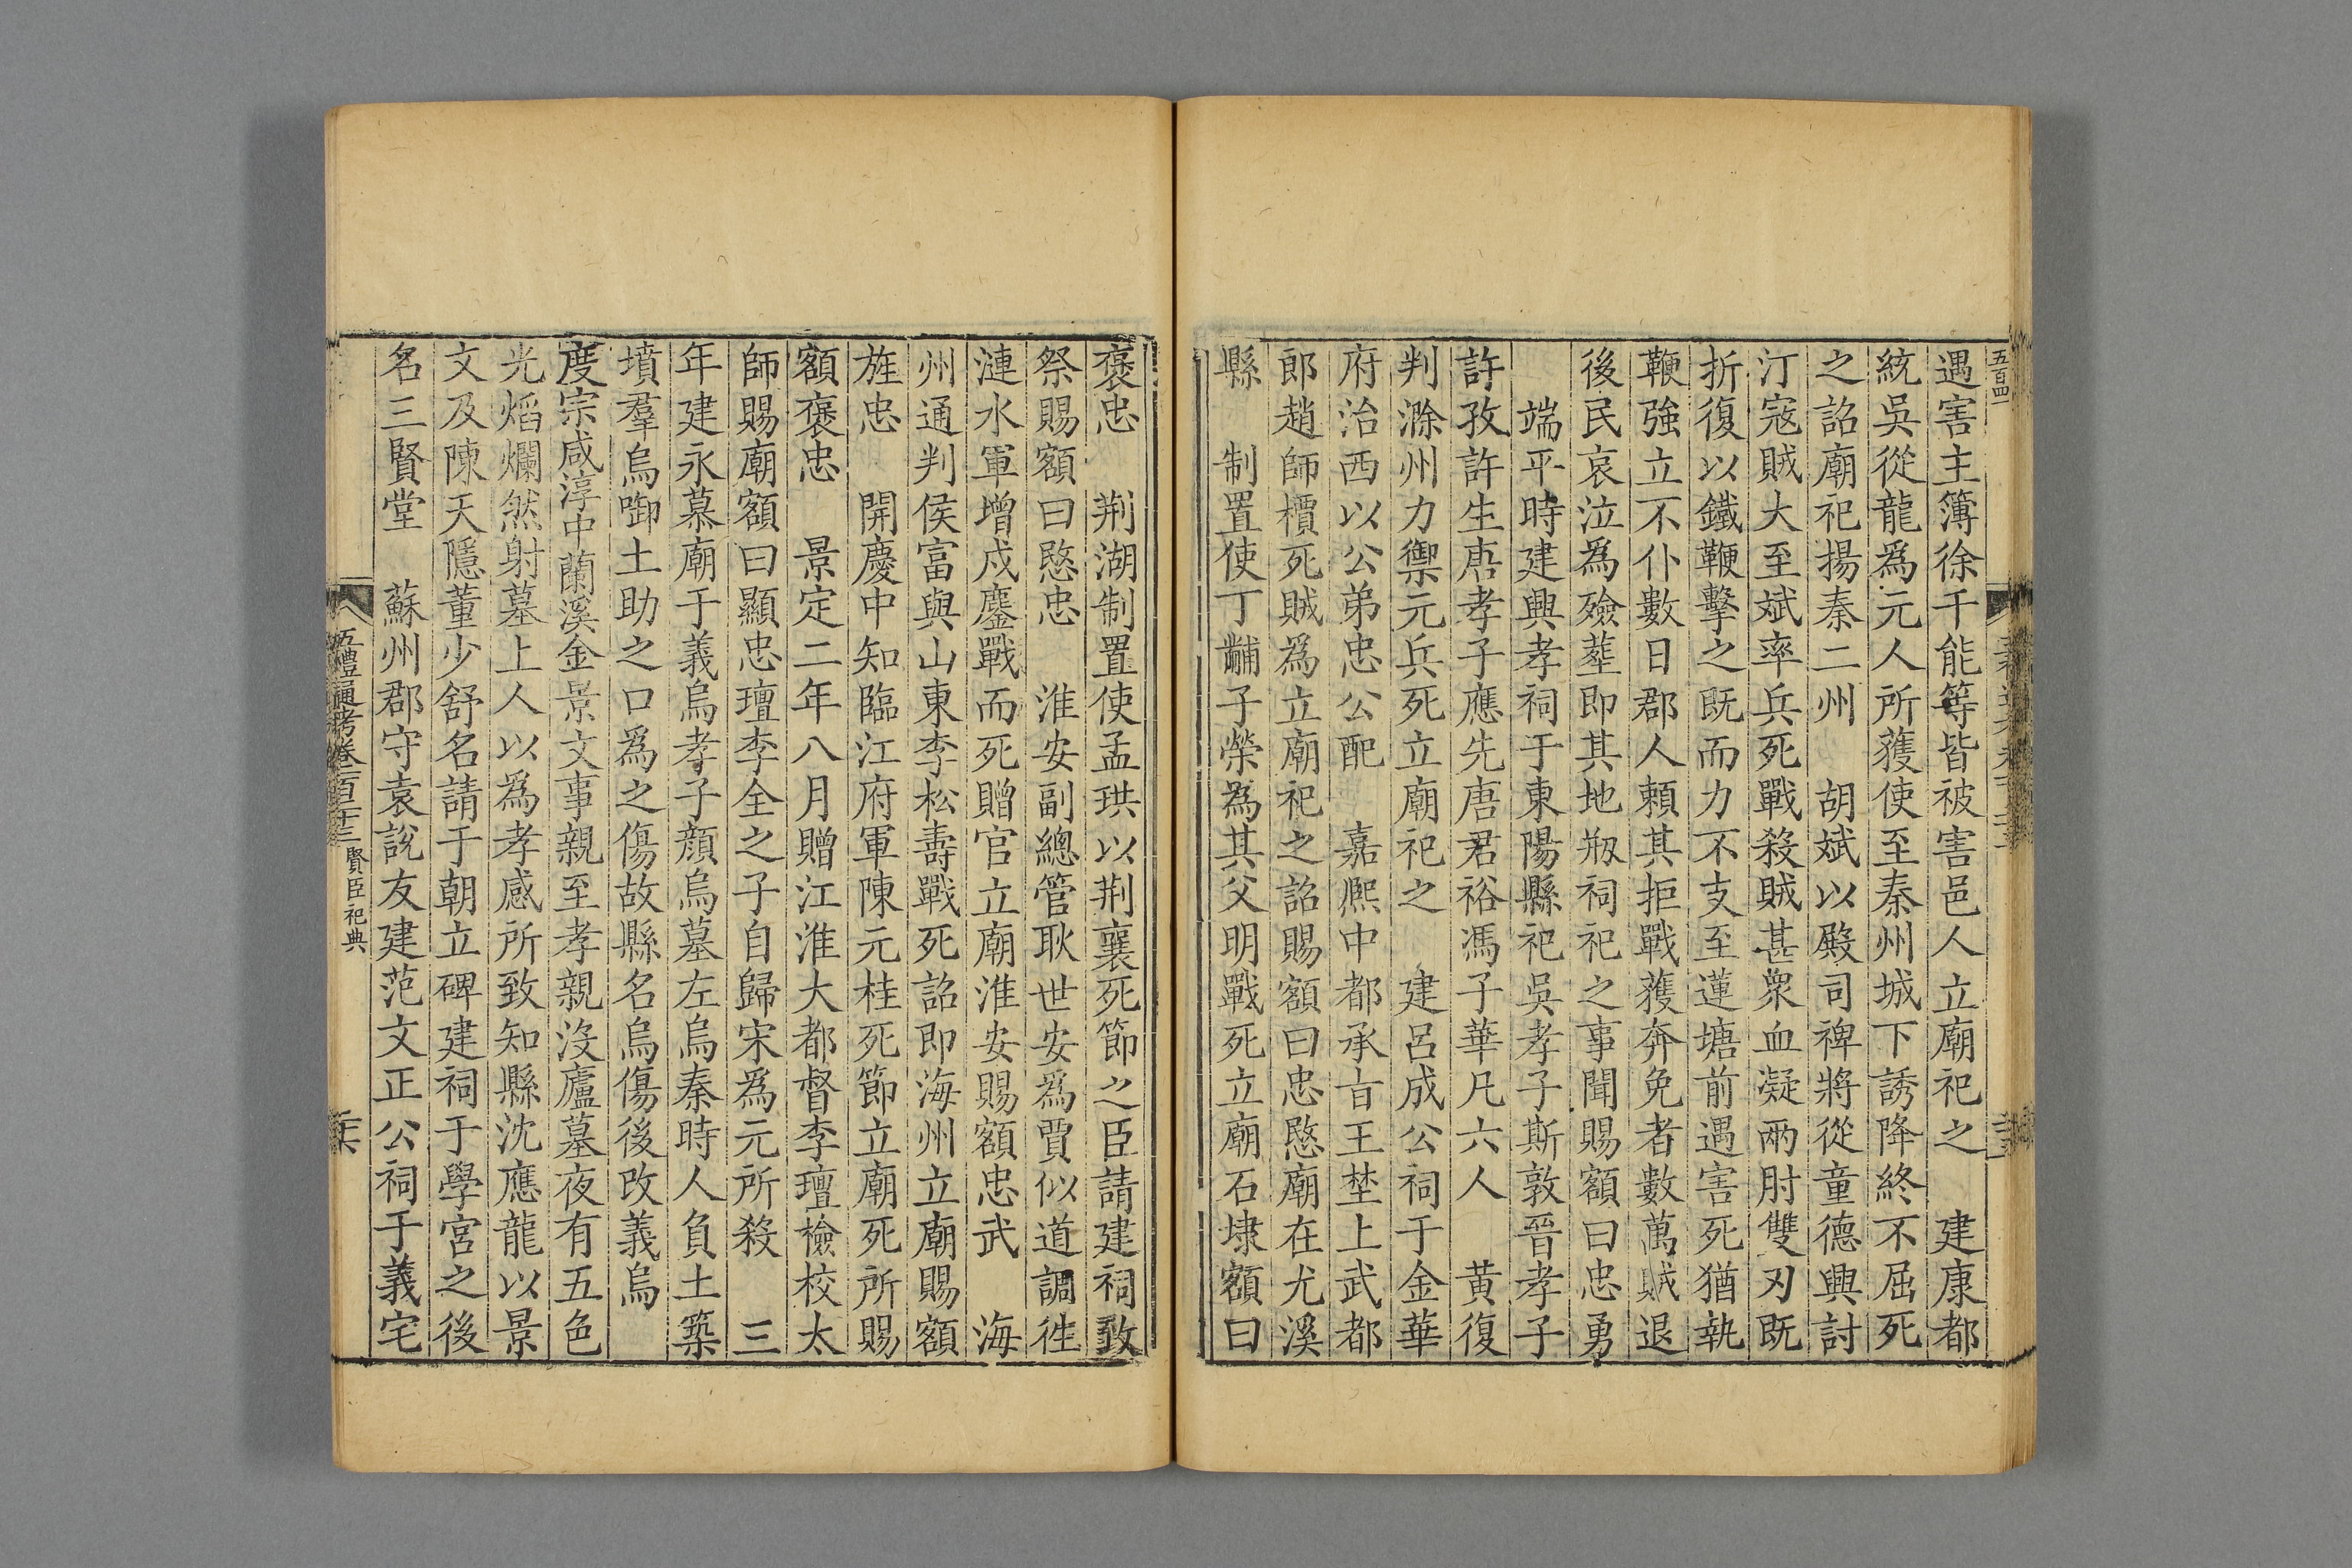 五百四
遇害主簿徐千能等皆被害邑人立廟祀之 建康都
統吳從龍爲元人所獲使至秦州城下誘降終不屈死
之詔廟祀揚秦二州 胡斌以殿司裨將從童德興討
汀寇賊大至斌率兵死戰殺賊甚衆血凝兩肘雙刃既
折復以鐵鞭擊之既而力不支至蓮塘前遇害死猶執
鞭強立不仆數日郡人賴其拒戰獲奔免者數萬賊退
後民哀泣爲殮塟即其地剏祠祀之事聞賜額曰忠勇
端平時建興孝祠于東陽縣祀吳孝子斯敦晉孝子
許孜許生唐孝子應先唐君裕馮子華凡六人 黄復
判滁州力禦元兵死立廟祀之 建呂成公祠于金華
府治西以公弟忠公配 嘉熙中都承旨王埜上武都
郎趙師檟死賊爲立廟祀之詔賜額曰忠愍廟在尤溪
縣 制置使丁黼子榮爲其父明戰死立廟石埭額曰
褒忠 荆湖制置使孟珙以荆襄死節之臣請建祠致
祭賜額曰愍忠 淮安副總管耿世安爲賈似道調徃
漣水軍增戍鏖戰而死贈官立廟淮安賜額忠武 海
州通判侯富與山東李松壽戰死詔即海州立廟賜額
旌忠 開慶中知臨江府軍陳元桂死節立廟死所賜
額褒忠 景定二年八月贈江淮大都督李璮檢校太
師賜廟額曰顯忠璮李全之子自歸宋爲元所殺 三
年建永慕廟于義烏孝子顔烏墓左烏秦時人負土築
墳羣烏啣土助之口爲之傷故縣名烏傷後改義烏
度宗咸淳中蘭溪金景文事親至孝親沒廬墓夜有五色
光熖爛然射墓上人以爲孝感所致知縣沈應龍以景
文及陳天隱董少舒名請于朝立碑建祠于學宮之後
名三賢堂 蘇州郡守袁說友建范文正公祠于義宅
五禮通考卷一百二十三 賢臣祀典